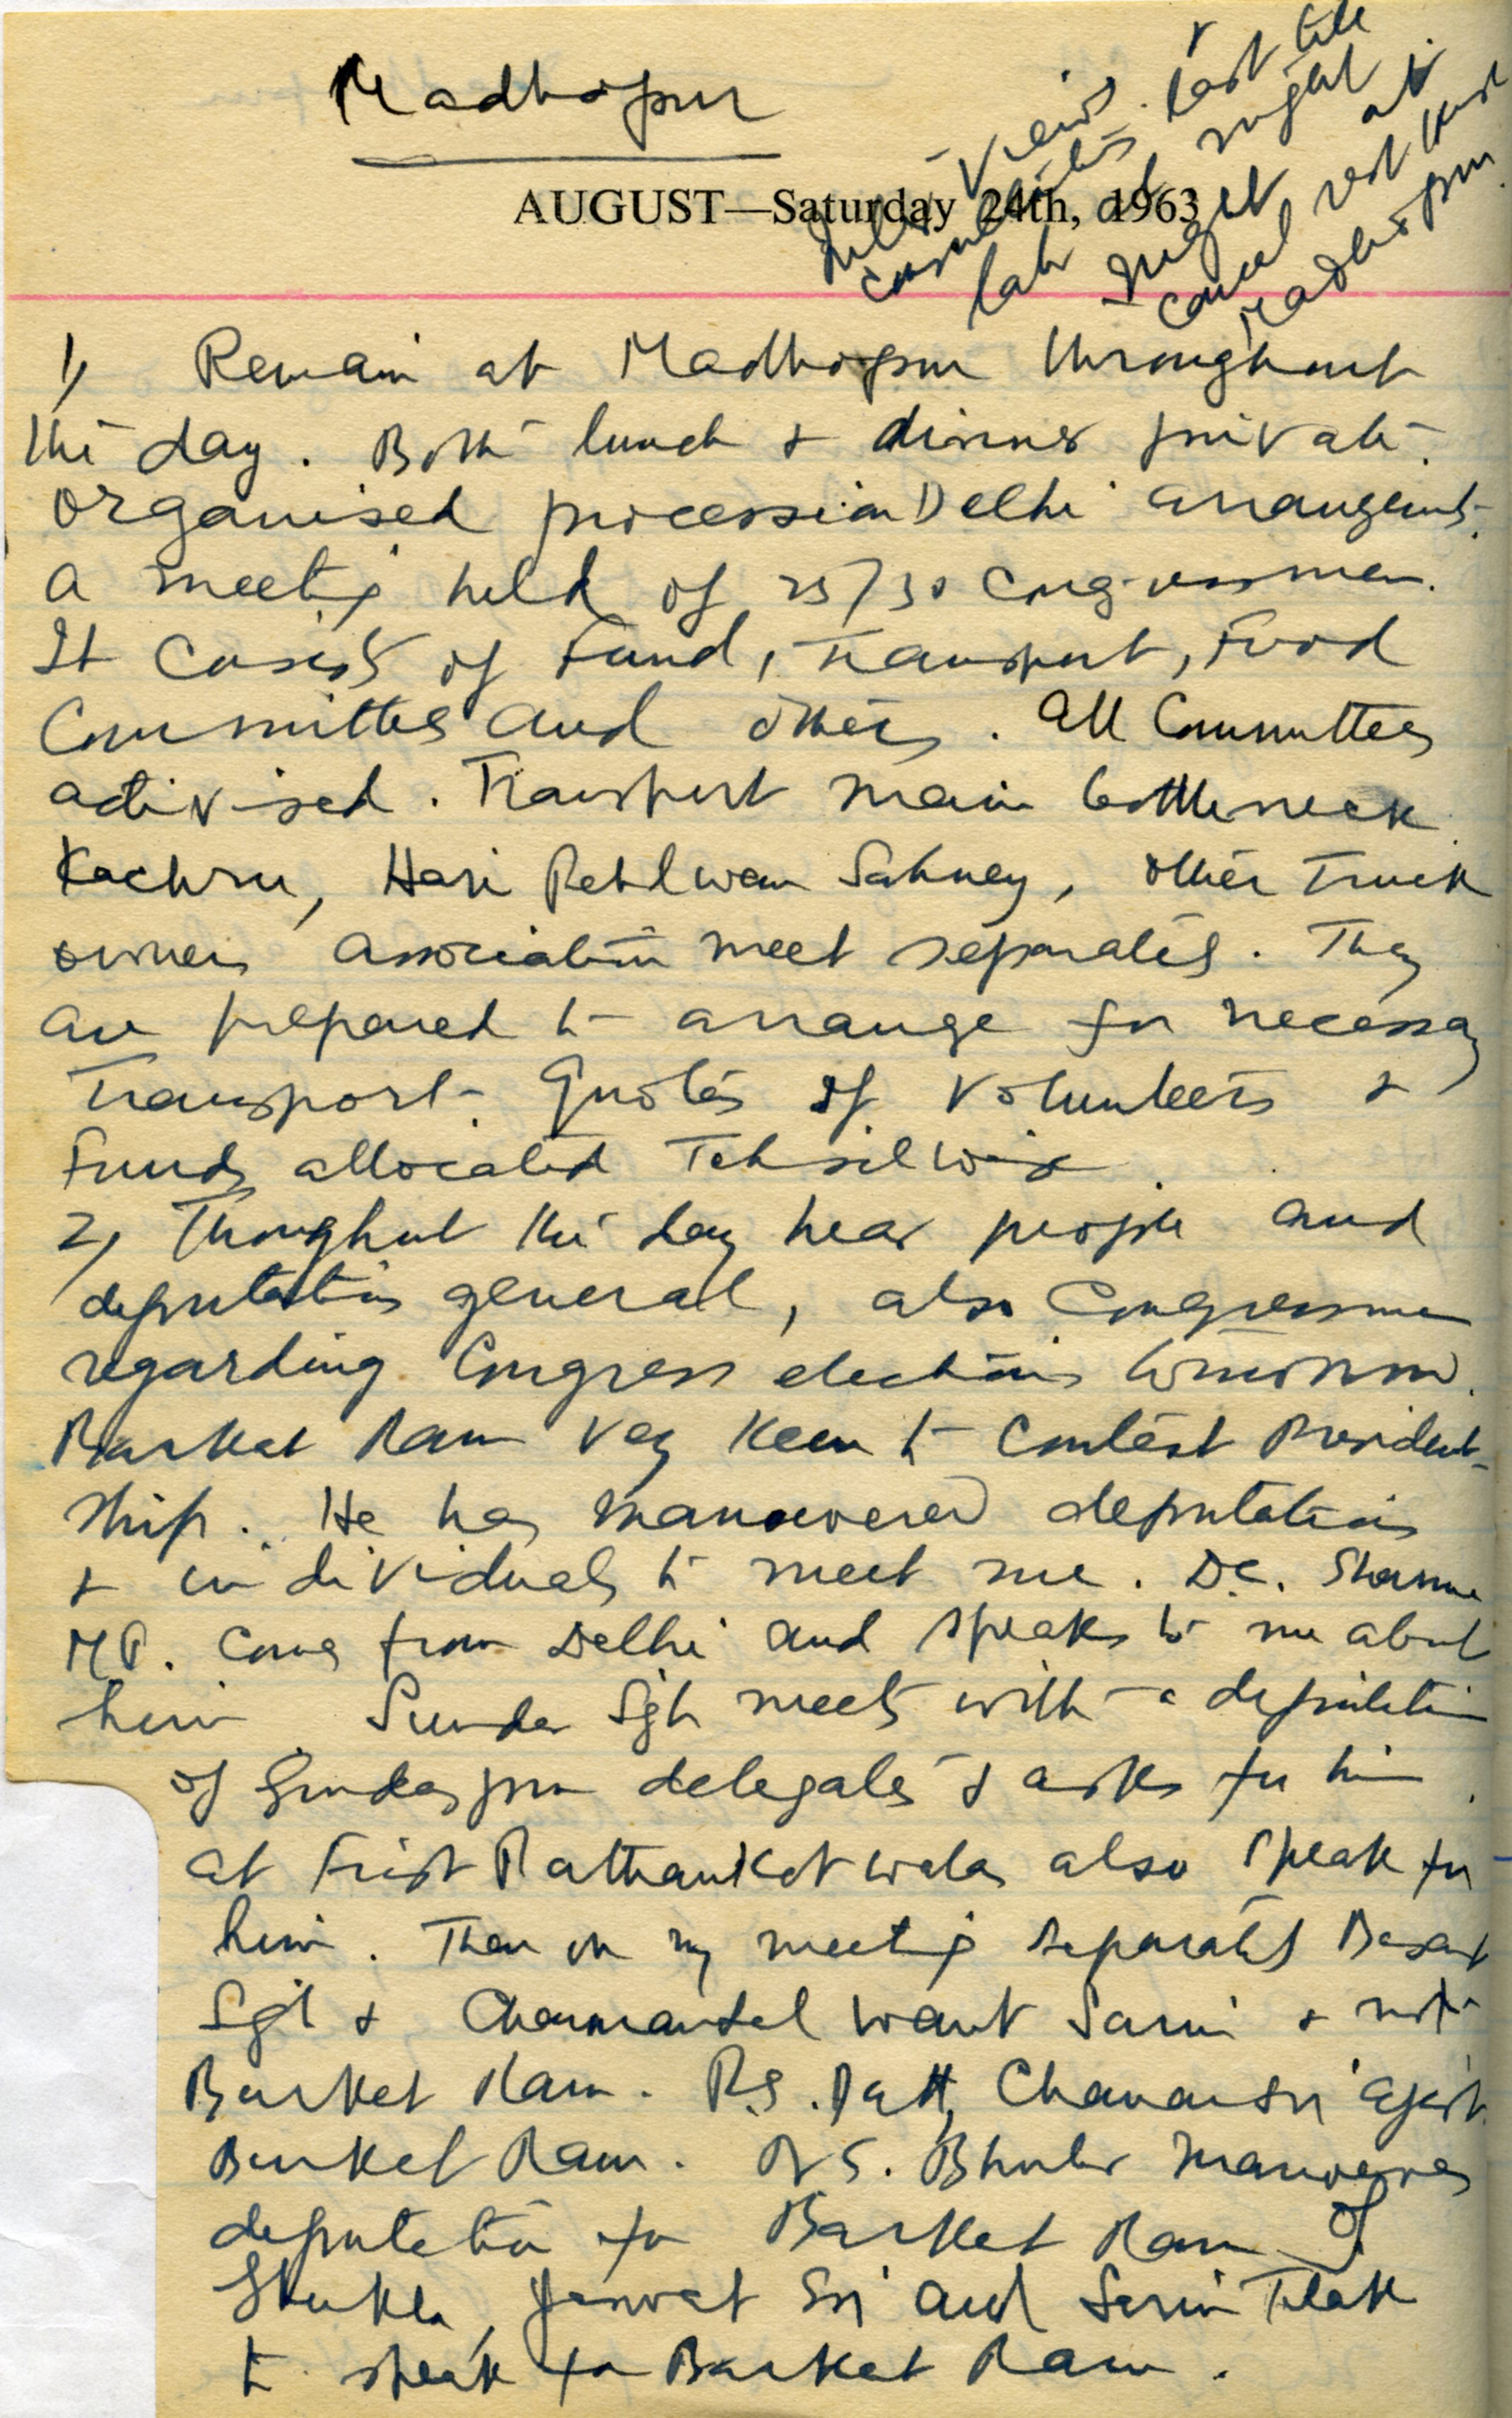 Madhopur
AUGUST—Saturday 24th, 1963
Inter views &
consultations last till
late at night
night at
rest house
Madhopur
1) Remain at Madhopur throughout
the day. Both lunch & dinner private.
Organised procession Delhi arrangemts.
A meeting held of 25/30 Congressmen.
It consists of Fund, Transport, Food
Committees and others. All Committees
activised. Transport main bottleneck.
Kachru, Hari Pehlwan Sahney, other Truck
owners association meet separately. They
are prepared to arrange for necessary
Transport. Quotas of volunteers &
Funds allocated Tehsilwise.
2) Throughout the day hear people and
deputations general, also Congressmen
regarding Congress elections tomorrow.
Barket Ram very keen to contest President-
ship. He has manoevered deputations
& individuals to meet me. D.C. Sharma
M.P. comes from Delhi and speaks to me about
him. Sunder Sgh meets with a deputation
of Gurdaspur delegates & asks for him.
At first Pathankot walas also speak for
him. Then on my meeting separately Basant
Sgh & Chamanlal want Saini & not
Barket Ram. R.S. Datt, Chanan Sri agst
Barket Ram. S. Bhular manoevres
deputation for Barket Ram of
Shukla, Jaswat Sri and Tilak
to speak for Barket Ram.